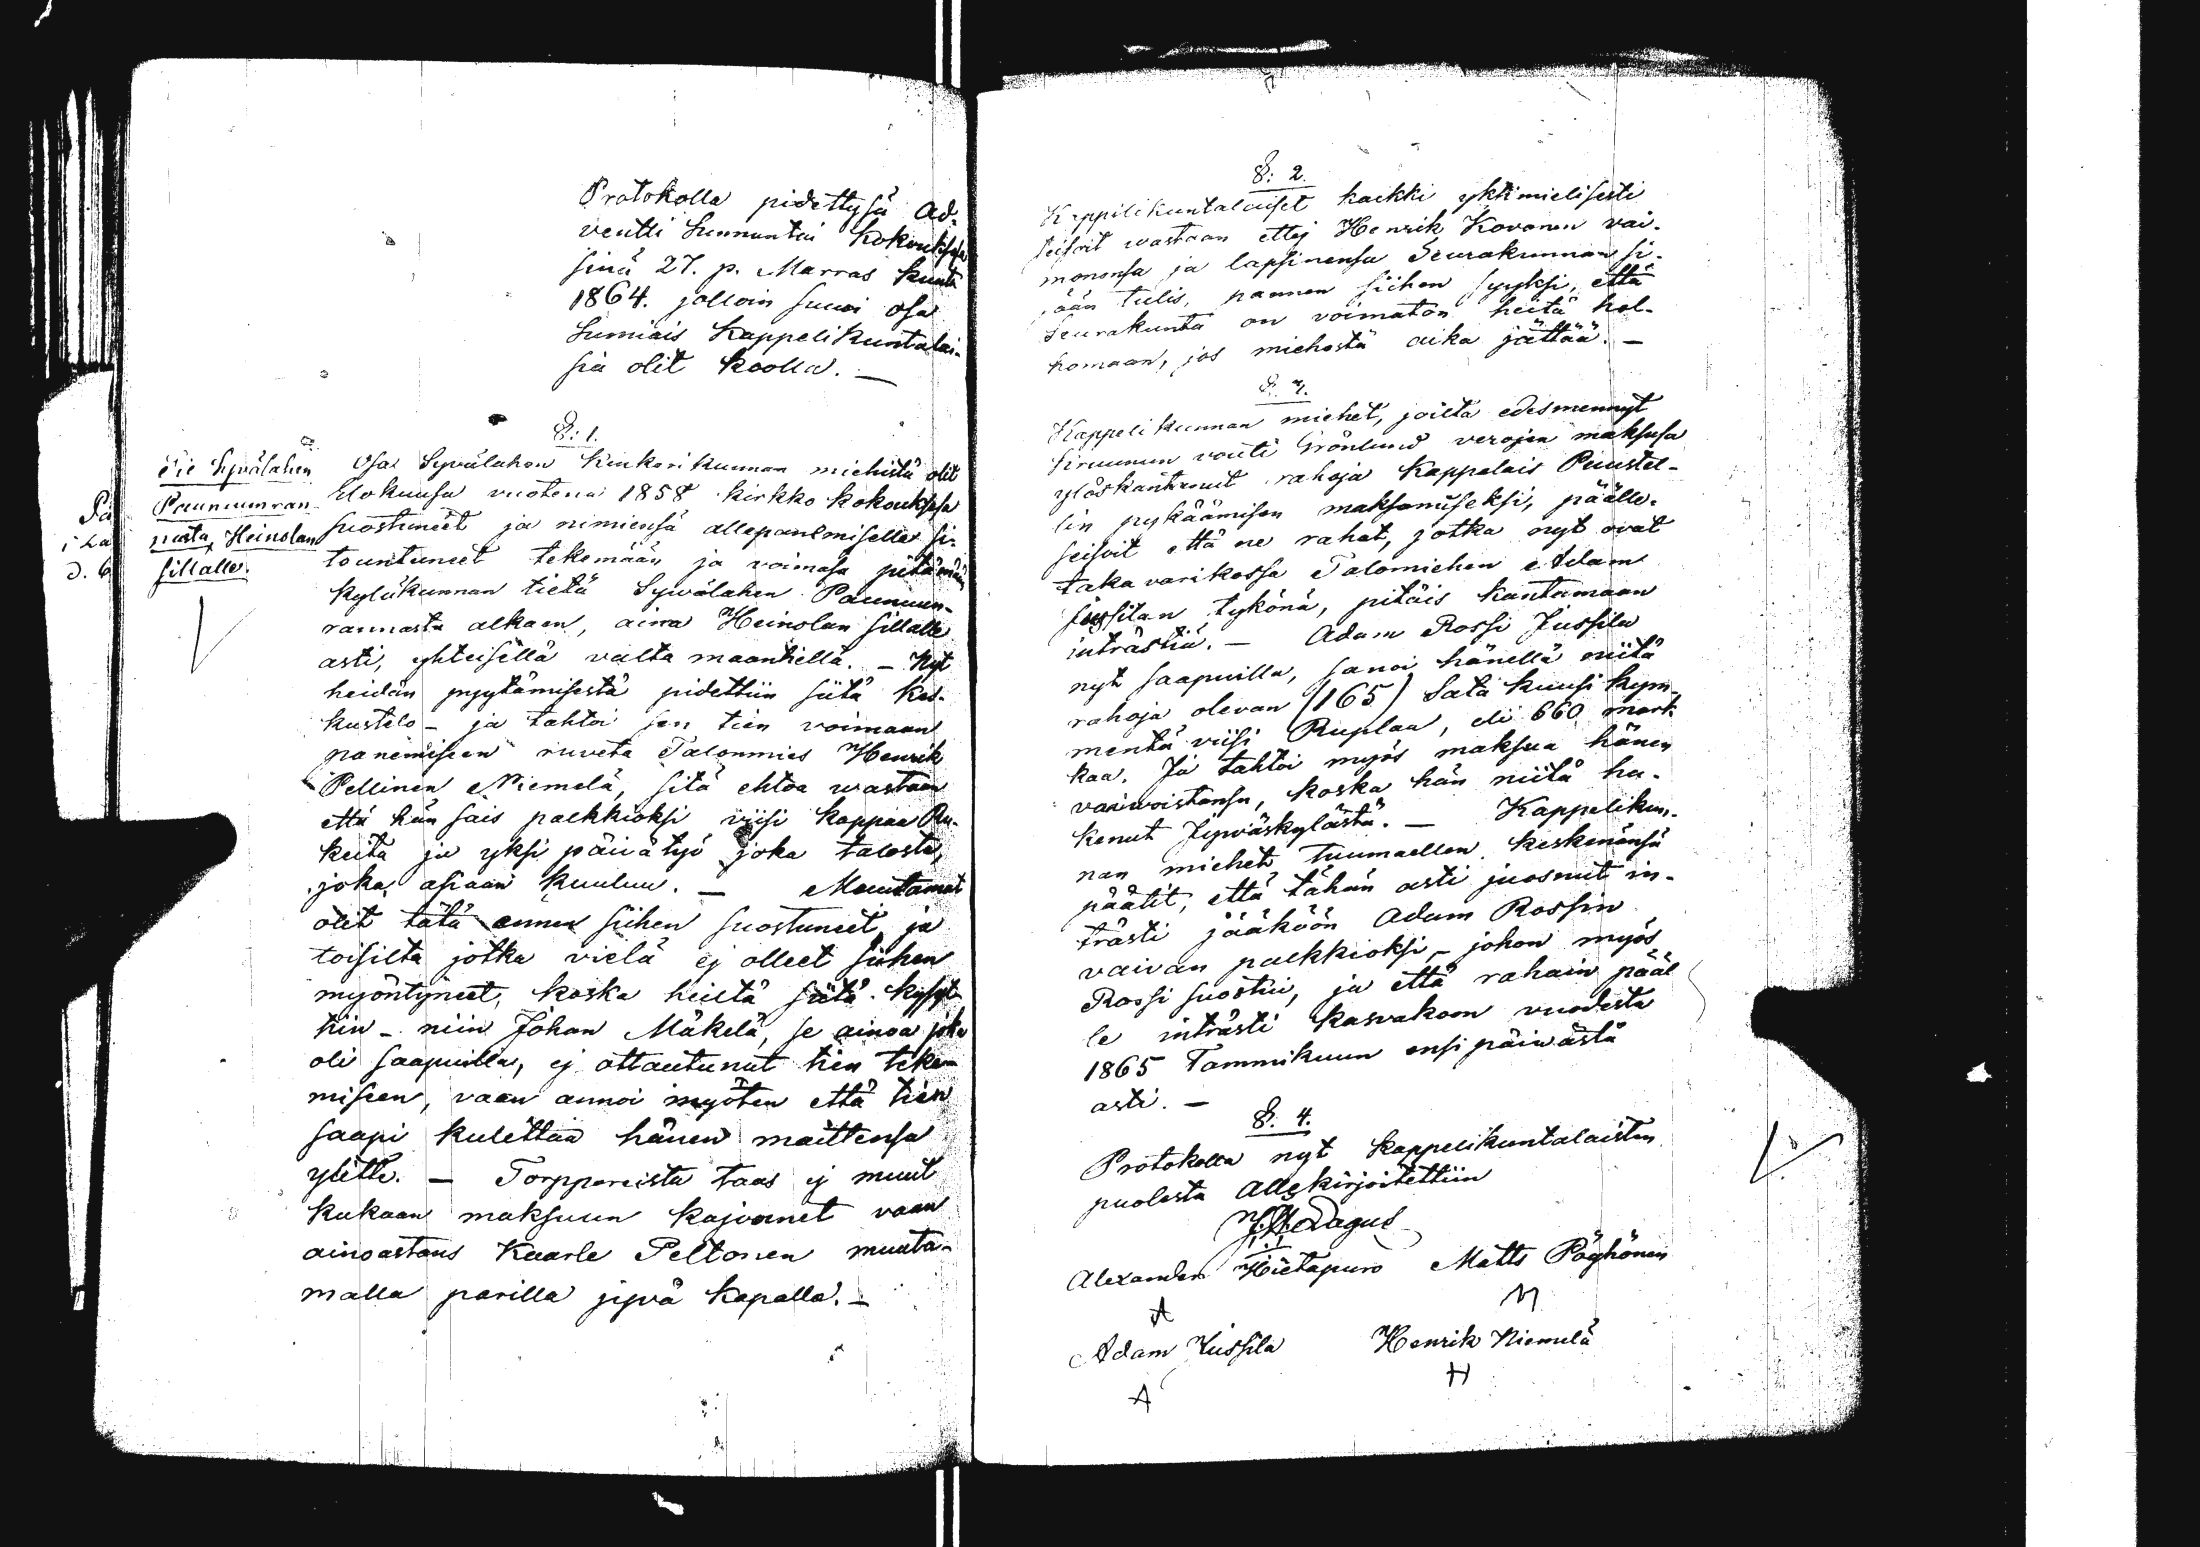 Protokolla pidettysä Ad-
ventti Sunnuntai Kokouksesa
sinä 27. p. Marras kuuta
1864. jolloin suuri osa
Sumiais Kappelikuntalai-
sia olit koolla. —
§: 1.
Tie Syvälahen
Paununran-
nasta, Heinolan
sillalle.
Osa Syvälahen Kinkerikunnan miehistä olit
Elokuusa vuotena 1858 kirkko kokouksesa
suostuneet ja nimiensä allepanemisella si-
tountuneet tekemään ja voimasa pitämään
kyläkunnan tietä Syvälahen Paunuun-
rannasta alkaen, aina Heinolan sillalle
asti, yhteisellä valta maantiellä. — Nyt
heidän pyytämisestä pidettiin siitä Kes-
kustelo — ja tahtoi sen tien voimaan
panemiseen ruveta Talonmies Henrik
Pellinen Niemelä, sitä ehtoa wastaan
että hän sais palkkioksi viisi kappaa Ru-
keita ja yksi päivätyö joka talosta,
joka asiaan kuuluu. — Muutamat
olit tätä ennen siihen suostuneet, ja
toisilta jotka vielä ej olleet siihen
myöntyneet, koska heiltä siitä kysyt-
tiin — niin Johan Mäkelä, se ainoa joka
oli saapuilla, ej ottautunut tien teke-
miseen, vaan annoi myöten että tien
saapi kulettaa hänen maittensa
ylitte. — Torppareista taas ej muut
kukaan maksuun kajonnet vaan
ainoastans Kaarle Peltonen muuta-
malla parilla jyvä kapalla. —
§: 2.
Kappelikuntalaiset kaikki yksimielisesti
seisoit wastaan ettej Henrik Kovanen vai-
monensa ja lapsinensa Seurakunnan si-
jään tulis, pannen siihen syyksi, että
Seurakunta on voimaton heitä hol-
homaan, jos miehestä aika jättää. —
§. 3.
Kappelikunnan miehet, joilta edesmennyt
kruunun vouti Grönlund verojen maksusa
ylöskantanut rahoja Kappalais Puustel-
lin pykäämisen maksamiseksi, päälle-
seisoit että ne rahat, jotka nyt ovat
takavarikossa Talomiehen Adam
Jussilan tykönä, pitäis kantamaan
inträstiä. — Adam Rossi Jussila
nyt saapuilla, sanoi hänellä niitä
rahoja olevan (165) Sata kuusi kym-
mentä viisi Ruplaa, eli 660 mark-
kaa. Ja tahtoi myös maksua hänen
vaivoistansa, koska hän niitä ha-
kenut Jyväskylästä. — Kappelikun-
nan miehet tuumaellen keskenänsä
päätit, että tähän asti juosnut in-
trästi jääköön Adam Rossin
vaivan palkkioksi — johon myös
Rossi suostui, ja että rahain pääl
le inträsti kasvakoon vuodesta
1865 Tammikuun ensi päiwästä
asti. —
§. 4.
Protokolla nyt Kappelikuntalaisten
puolesta Allekirjoitettiin
Alexander Hietapuro Matts Pöyhönen
A M
Adam Jussila Henrik Niemelä
A H